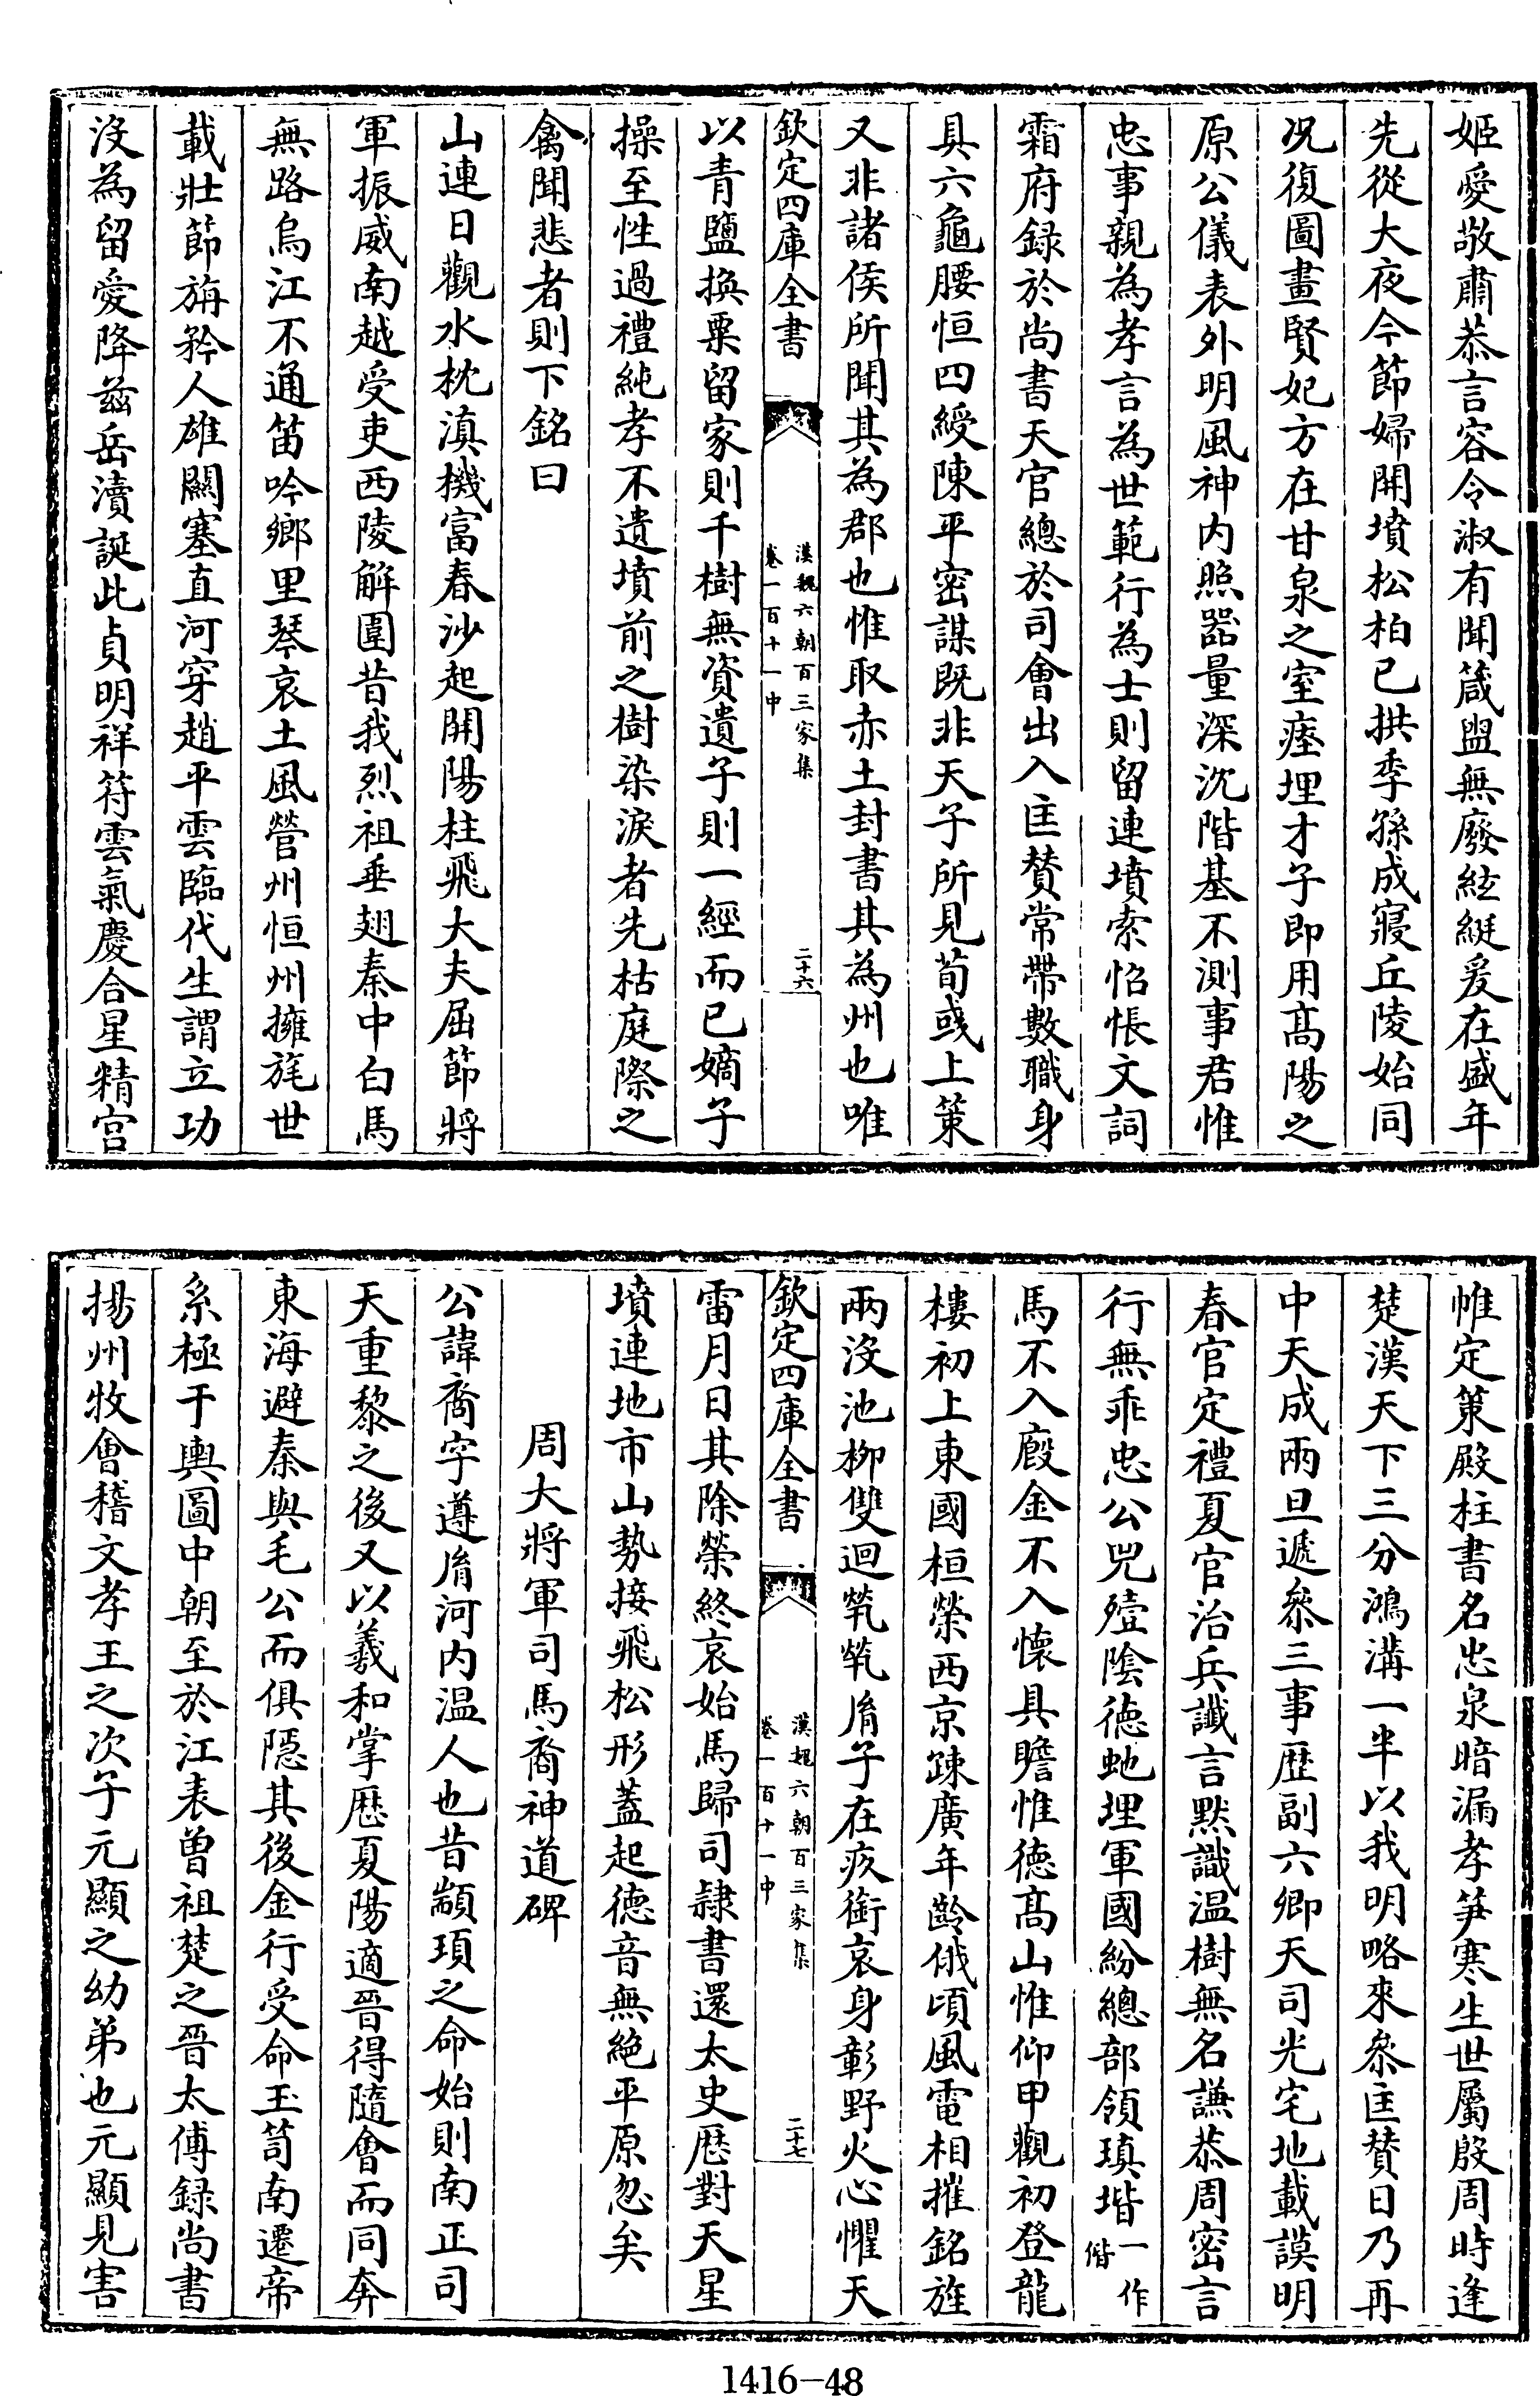 姬愛敬肅恭言容令淑有聞箴盥無廢紘綖爰在盛年
先從大夜今節婦開墳松柏已拱季孫成寢丘陵始同
况復圖畫賢妃方在甘泉之室瘞埋才子即用髙陽之
原公儀表外明風神内照器量深沈階基不測事君惟
忠事親為孝言為世範行為士則留連墳索怊悵文詞
霜府録於尚書天官總於司會出入匡賛常帶數職身
具六龜腰恒四綬陳平宻謀既非天子所見荀彧上策
又非諸侯所聞其為郡也惟取赤土封書其為州也唯
欽定四庫全書
漢魏六朝百三家集
卷一百十一中
二十六
以青鹽換粟留家則千樹無資遺子則一經而已嫡子
操至性過禮純孝不遺墳前之樹染淚者先枯庭際之
禽聞悲者則下銘曰
山連日觀水枕滇機富春沙起開陽柱飛大夫屈節將
軍振威南越受吏西陵解圍昔我烈祖垂翅秦中白馬
無路烏江不通笛吟鄉里琴哀土風營州恒州擁旄世
載壯節旃矜人雄關塞直河穿趙平雲臨代生謂立功
沒為留愛降兹岳瀆誕此貞明祥符雲氣慶合星精宫
帷定策殿柱書名忠泉暗漏孝笋寒生世屬殷周時逢
楚漢天下三分鴻溝一半以我明略來叅匡賛日乃再
中天成兩旦遞叅三事歴副六卿天司光宅地載謨明
春官定禮夏官治兵讖言黙識温樹無名謙恭周宻言
行無乖忠公兕殪陰徳虵埋軍國紛總部領瑱堦一作偕
馬不入廐金不入懐具瞻惟徳髙山惟仰甲觀初登龍
樓初上東國桓榮西京踈廣年齡俄頃風電相摧銘旌
兩沒池柳雙迴煢煢胤子在疚銜哀身彰野火心懼天
欽定四庫全書
漢魏六朝百三家集
卷一百十一中
二十七
雷月日其除榮終哀始馬歸司隷書還太史歴對天星
墳連地市山勢接飛松形蓋起德音無絶平原忽矣
周大將軍司馬裔神道碑
公諱裔字遵胤河内温人也昔顓頊之命始則南正司
天重黎之後又以羲和掌厯夏陽適晉得隨會而同奔
東海避秦與毛公而俱隠其後金行受命玉笥南遷帝
系極于輿圖中朝至於江表曽祖楚之晉太傅録尚書
揚州牧會稽文孝王之次子元顯之幼弟也元顯見害
1416-48